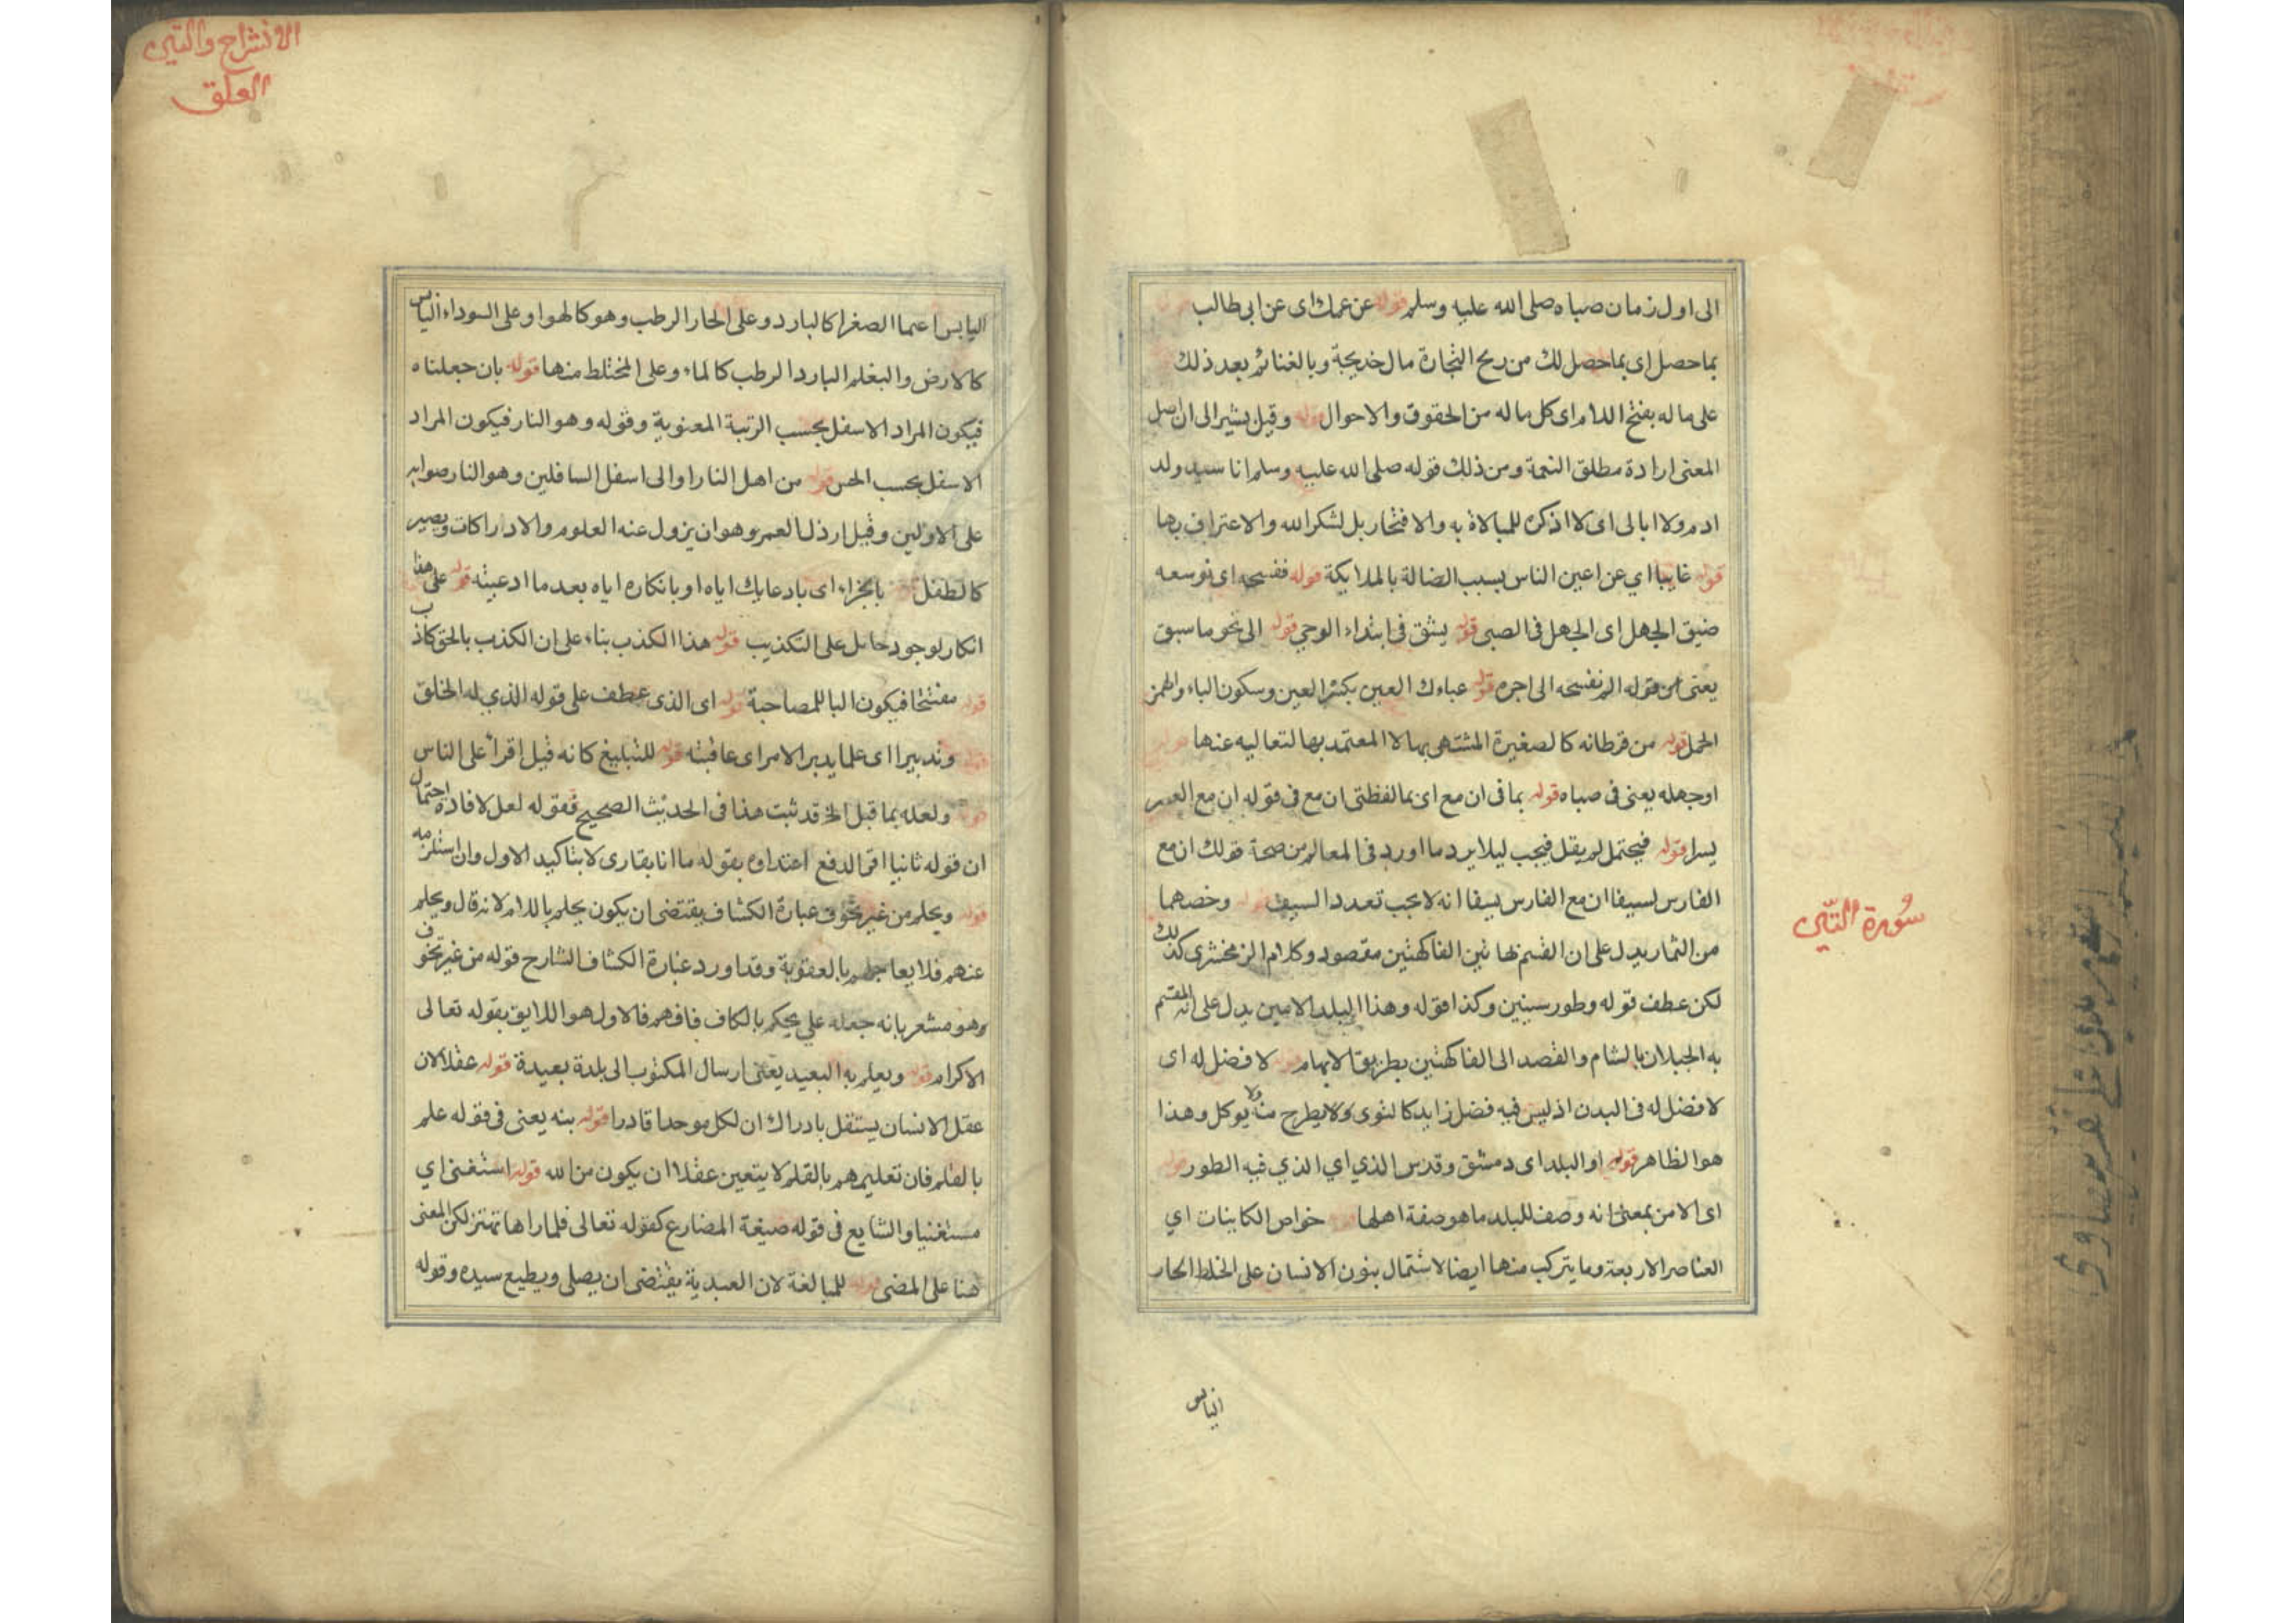 الى اول زمان صباه صلى الله عليه وسلم قوله عن عمك اى عن ابى طالب
بما حصل اى بما حصل لك من ربح التجارة مال خديجة وبالغنائم بعد ذلك
على ماله بفتح اللام اى كل ماله من الحقوق والاحوال قوله وقيل يشير الى ان اصل
المعنى ارادة مطلق النعمة ومن ذلك قوله صلى الله عليه وسلم انا سيد ولد
ادم ولا ابالى اى لا اذكره للمبالاة به والافتخار بل لشكر الله والاعتراف بها
قوله غايبا اي عن اعين الناس بسبب الضالة بالملايكة قوله ففسحه اى توسعه
ضيق الجهل اى الجهل فى الصبى قوله يشق فى ابتداء الوحي قوله الى نحو ما سبق
يعنى من قوله الم نفسحه الى اجره قوله عباءك العبئ بكسر العين وسكون الباء والهمز
الحمل قوله من فرطاته كالصغيرة المشتهى بها لا المعتمد بها لتعاليه عنها
او جهله يعنى فى صباه قوله بما فى ان مع اى بما لفظتى ان مع فى قوله ان مع العسر
يسرا قوله فيحتمل لم يقل فيجب ليلا يرد ما اورد فى المعالم من صحة قولك ان مع
الفارس لسيفا ان مع الفارس سيفا انه لا يجب تعدد السيف قوله وخصهما
من الثمار يدل على ان القسم بهاتين الفاكهتين مقصود وكلام الزمخشرى كذلك
لكن عطف قوله وطور سينين وكذا قوله وهذا البلد الامين يدل على انه المقسم
به الجبلان بالشام والقصد الى الفاكهتين بطريق الايهام قوله لا فضل له اى
لا فضل له فى البدن اذ ليس فيه فضل زايد كالنوى ولا يطرح منه ولا يوكل وهذا
هو الظاهر قوله او البلد اى دمشق وقدس الذي اي الذي فيه الطور قوله
اى الامن بمعنى انه وصف للبلد ما هو صفة اهلها قوله خواص الكاينات اي
العناصر الاربعة وما يتركب منها ايضا لاشتمال بنون الانسان على الخلط الحار
اليابس
سُورة التّين
الانشراح والتين
العلق
اليابس اعما الصفرا كالبارد وعلى الحار الرطب وهو كالهوا وعلى السوداء اليابس
كالارض والبغلم البارد الرطب كالماء وعلى المختلط منها قوله بان جعلناه
فيكون المراد الاسفل بحسب الرتبة المعنوية وقوله وهو النار فيكون المراد
الاسفل بحسب الحس قوله من اهل النار او الى اسفل السافلين وهو النار صوابه
على الاولين وقيل ارذل العمر وهو ان يزول عنه العلوم والادراكات ويصير
كالطفل قوله بالجزاء اى بادعايك اياه او بانكاره اياه بعد ما ادعيته قوله على هذا
انكار لوجود حامل على التكذيب قوله هذا الكذب بناء على ان الكذب بالحق كاذب
قوله مفتتحا فيكون البا للمصاحبة قوله اى الذى عطف على قوله الذي له الخلق
قوله وتدبيرا اى علما يدبر الامر اى عاقبته قوله للتبليغ كانه قيل اقرأ على الناس
قوله ولعله بما قبل الخ قد ثبت هذا فى الحديث الصحيح فقوله لعل لافادة احتمال
ان قوله ثانيا اقرا لدفع اعتذاره بقوله ما انا بقارى لا بتاكيد الاول وان استلزمه
قوله ويحلم من غير تخوف عبارة الكشاف يقتضى ان يكون يحلم باللام لانه قال ويحلم
عنهم فلا يعاجلهم بالعقوبة وقد اورد عبارة الكشاف الشارح قوله من غير تخوف
وهو مشعر بانه جعله على يحكم بالكاف فافهم فالاول هو اللايق بقوله تعالى
الاكرام قوله ويعلم به البعيد يعنى ارسال المكتوب الى بلدة بعيدة قوله عقلا لان
عقل الانسان يستقل بادراك ان لكل موحدا قادرا قوله بنه يعنى فى قوله علم
بالقلم فان تعليمهم بالقلم لا يتعين عقلا ان يكون من الله قوله استغنى اي
مستغنيا والشايع فى قوله صيغة المضارع كقوله تعالى فلما راها تهتز لكن المعنى
هنا على المضى قوله للمبالغة لان العبدية يقتضى ان يصلى ويطيع سيده وقوله